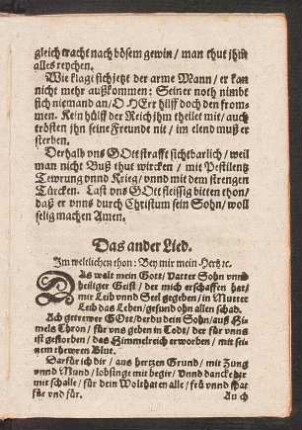 gleich tracht nach bösem gewin / man thut jhm
alles reychen.
Wie klagt sich jetzt der arme Mann / er kan
nicht mehr außkommen: Seiner noth nimbt
sich niemand an / O HErr hilff doch den from-
men. Kein hülff der Reich jhm theilet mit / auch
trösten jhn seine Freunde nit / im elend muß er
sterben.
Derhalb vns GOtt strafft sichtbarlich / weil
man nicht Buß thut wircken / mit Pestilentz
Tewrung vnnd Krieg / vnnd mit dem strengen
Türcken. Last vns GOtt fleissig bitten thon /
daß er vnns durch Christum sein Sohn / woll
selig machen Amen.
Das ander Lied.
Im weltlichen thon: Bey mir mein Hertz ꝛc.
DAs walt mein Gott / Vatter Sohn vnnd
heiliger Geist / der mich erschaffen hat /
mit Leib vnnd Seel gegeben / in Mutter
Leib das Leben / gesund ohn allen schad.
Ach getrewer GOtt / der du dein Sohn / auß Hi-
mels Thron / für vns geben in Todt / der für vnns
ist gestorben / das Himmelreich erworben / mit sei-
nem thewren Blut.
Darfür ich dir / aus hertzen Grund / mit Zung
vnnd Mund / lobsinge mit begir / Vnnd dancke dir
mit schalle / für dein Wolthaten alle / frü vnnd spat
für vnd für.
Auch